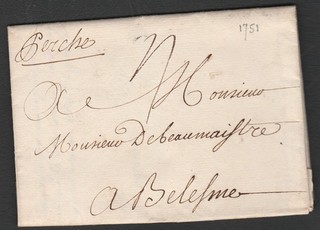 1751
Perche
A Monsieur
Monsieur De beaumaistre
A Belesme